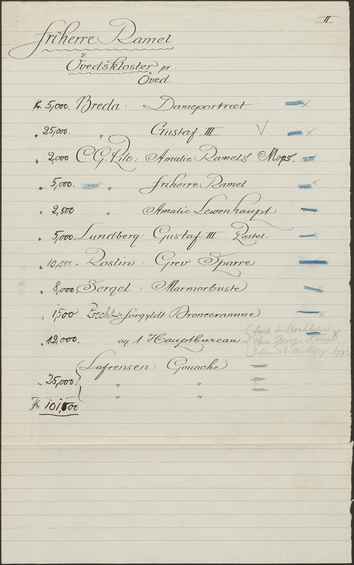 II
friherre Ramel
Övedskloster pr
Öved
Kr 5,000. Breda. Dameportræt
" 25,000. " Gustaf III
" 2,000 C.G. Pilo. Amalie Ramels Mops.
" 5,000. " friherre Ramel
" 2,500 " Amalie Lewenhaupt
" 5,000 Lundberg. Gustaf III. Pastel
" 10,000 Roslin. Grev Sparre
" 8,000 Sergel. Marmorbuste
" 1,500 forgyldt Bronceramme
" 12,000 og 1 Hauptbureau
Lafrensen. Gouache
" 25,000 " "
" "
Kr 101,500